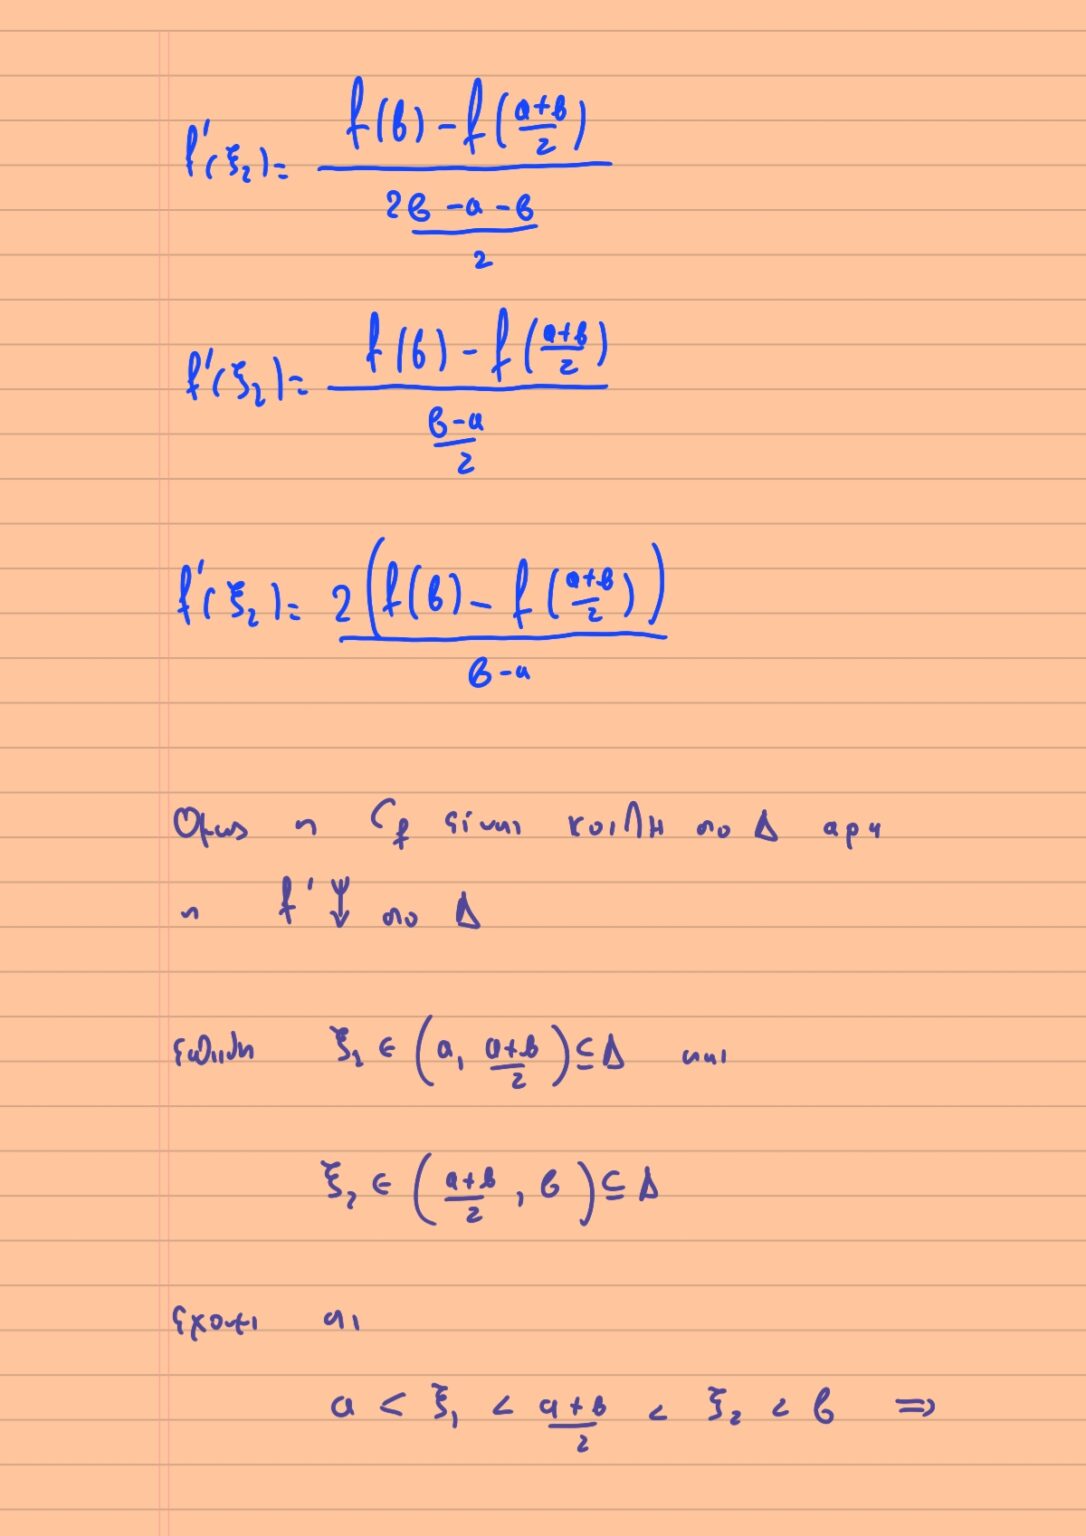 f'(ξ₂) = (f(β) - f((α+β)/2)) / ((2β-α-β)/2)
f'(ξ₂) = (f(β) - f((α+β)/2)) / ((β-α)/2)
f'(ξ₂) = 2(f(β) - f((α+β)/2)) / (β-α)
Όμως η C_f είναι κοίλη στο Δ άρα
η f' ↓ στο Δ
επειδή ξ₁ ∈ (α, (α+β)/2) ⊆ Δ και
ξ₂ ∈ ((α+β)/2, β) ⊆ Δ
έχουμε ότι
α < ξ₁ < (α+β)/2 < ξ₂ < β ⇒